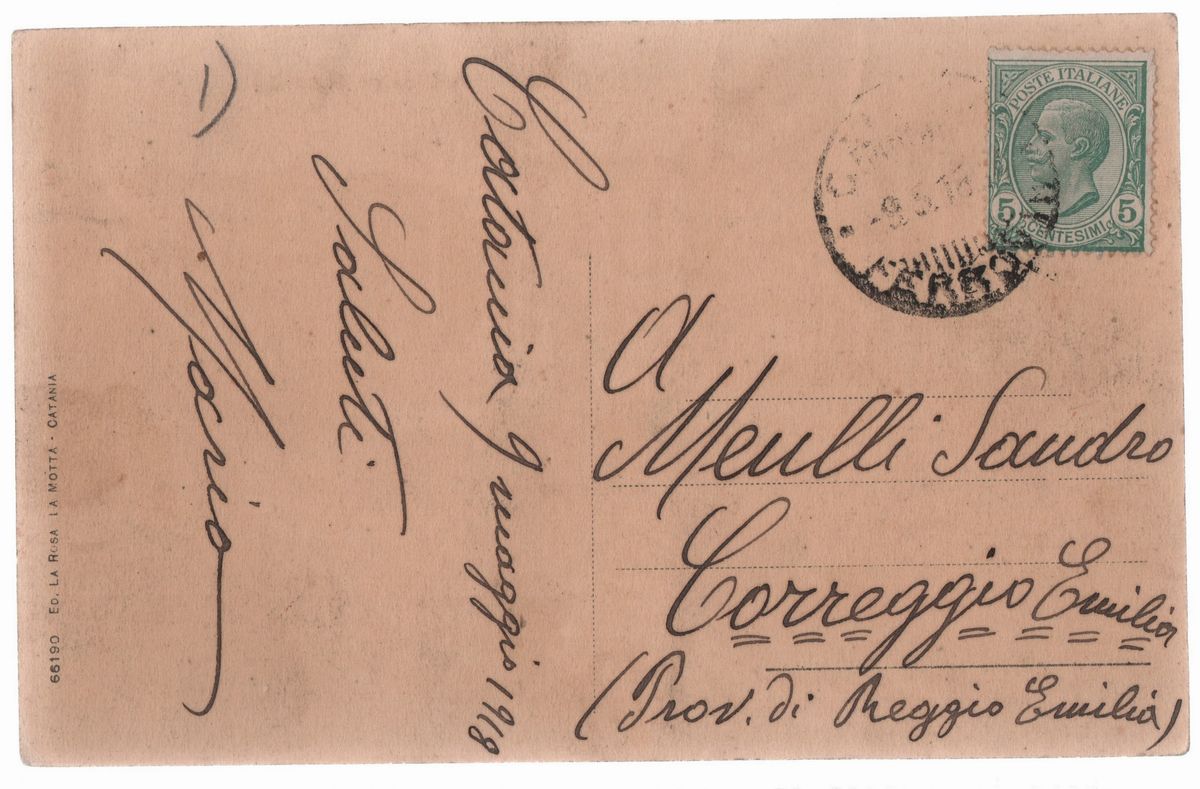 Catania 9 maggio 1918
Saluti
Mario
66190 ED. LA ROSA LA MOTTA - CATANIA
POSTE ITALIANE
5 5
CENTESIMI
-9.5.18
FERROVIA
A
Meulli Sandro
Correggio Emilia
(Prov. di Reggio Emilia)